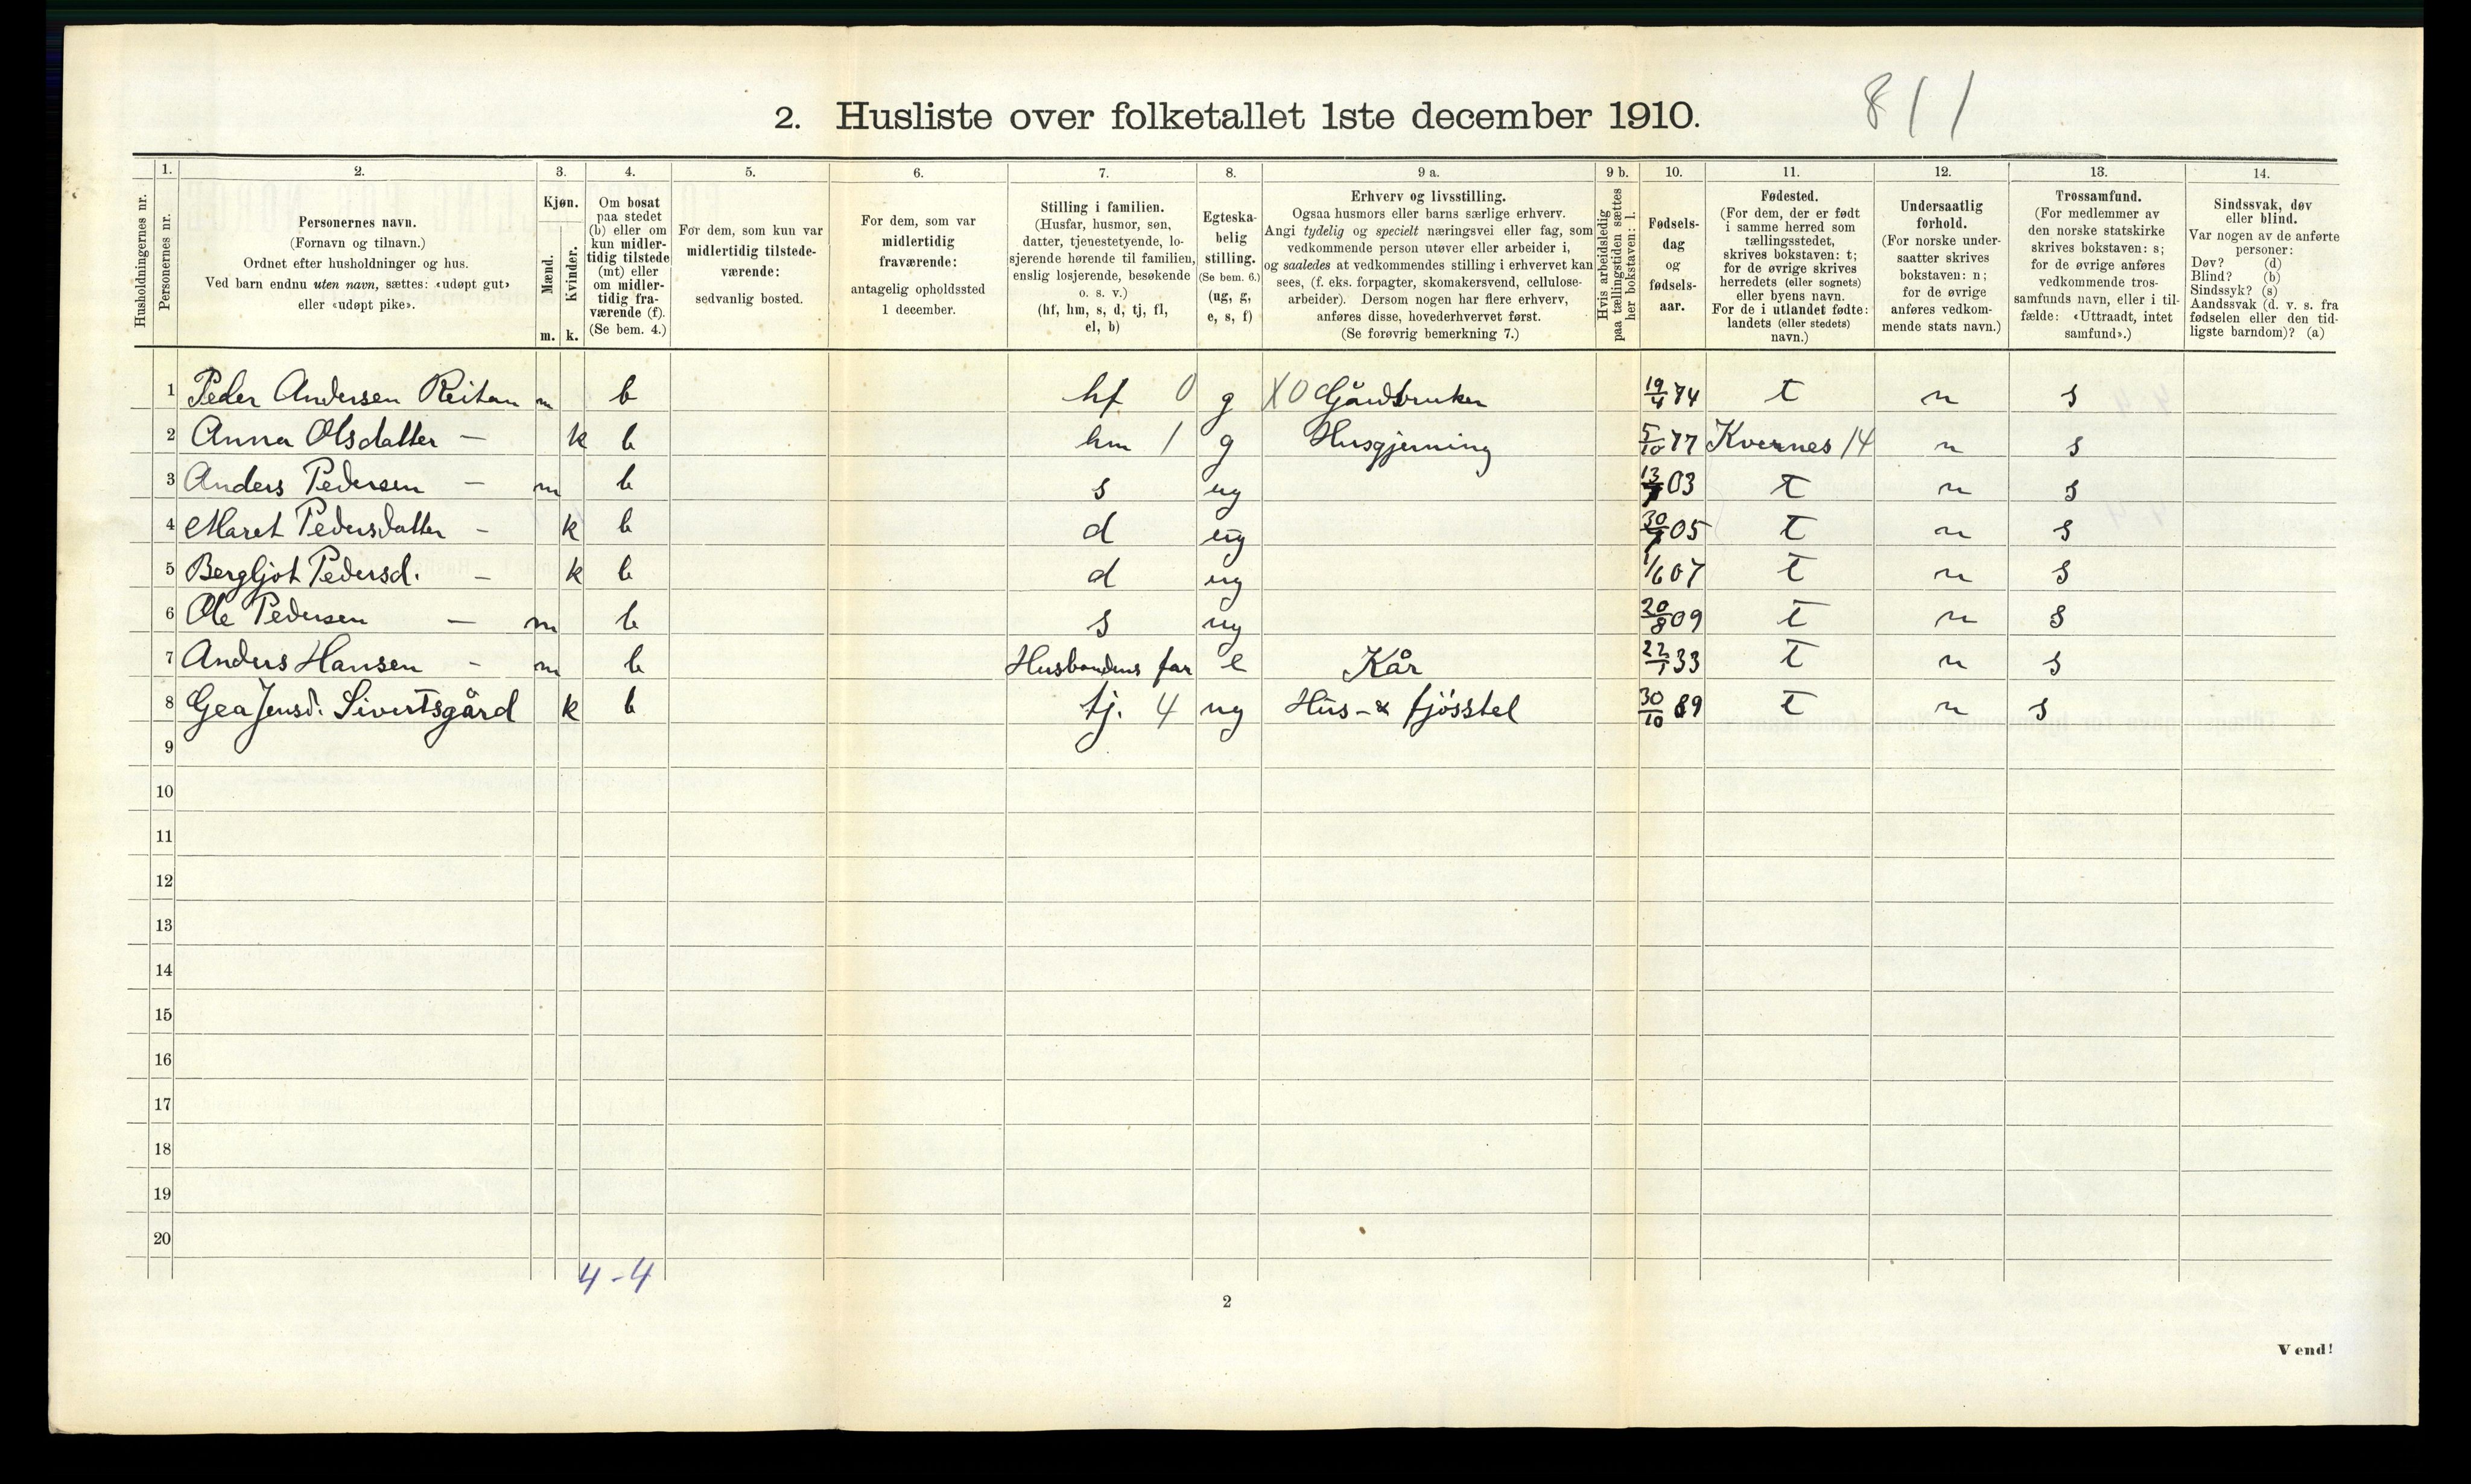 811
2. Husliste over folketallet 1ste december 1910.
Husholdningernes nr.
1.
Personernes nr.
2.
Personernes navn.
(Fornavn og tilnavn.)
Ordnet efter husholdninger og hus.
Ved barn endnu uten navn, sættes: «udøpt gut»
eller «udøpt pike».
3.
Kjøn.
Mænd.
Kvinder.
m. k.
4.
Om bosat
paa stedet
(b) eller om
kun midler-
tidig tilstede
(mt) eller
om midler-
tidig fra-
værende (f).
(Se bem. 4.)
5.
For dem, som kun var
midlertidig tilstede-
værende:
sedvanlig bosted.
6.
For dem, som var
midlertidig
fraværende:
antagelig opholdssted
1 december.
7.
Stilling i familien.
(Husfar, husmor, søn,
datter, tjenestetyende, lo-
sjerende hørende til familien,
enslig losjerende, besøkende
o. s. v.)
(hf, hm, s, d, tj, fl,
el, b)
8.
Egteska-
belig
stilling.
(Se bem. 6.)
(ug, g,
e, s, f)
9 a.
Erhverv og livsstilling.
Ogsaa husmors eller barns særlige erhverv.
Angi tydelig og specielt næringsvei eller fag, som
vedkommende person utøver eller arbeider i,
og saaledes at vedkommendes stilling i erhvervet kan
sees, (f. eks. forpagter, skomakersvend, cellulose-
arbeider). Dersom nogen har flere erhverv,
anføres disse, hovederhvervet først.
(Se forøvrig bemerkning 7.)
9 b.
Hvis arbeidsledig
paa tællingstiden sættes
her bokstaven: l.
10.
Fødsels-
dag
og
fødsels-
aar.
11.
Fødested.
(For dem, der er født
i samme herred som
tællingsstedet,
skrives bokstaven: t;
for de øvrige skrives
herredets (eller sognets)
eller byens navn.
For de i utlandet fødte:
landets (eller stedets)
navn.)
12.
Undersaatlig
forhold.
(For norske under-
saatter skrives
bokstaven: n;
for de øvrige
anføres vedkom-
mende stats navn.)
13.
Trossamfund.
(For medlemmer av
den norske statskirke
skrives bokstaven: s;
for de øvrige anføres
vedkommende tros-
samfunds navn, eller i til-
fælde: «Uttraadt, intet
samfund».)
14.
Sindssvak, døv
eller blind.
Var nogen av de anførte
personer:
Døv? (d)
Blind? (b)
Sindssyk? (s)
Aandssvak (d. v. s. fra
fødselen eller den tid-
ligste barndom)? (a)
1 Peder Andersen Reitan m b hf 0 g X0 Gårdbruker 19/4 74 t n s
2 Anna Olsdatter — k b hm 1 g Husgjerning 5/10 77 Kvernes 14 n s
3 Anders Pedersen — m b s ug 13/7 03 t n s
4 Maret Pedersdatter - k b d ug 30/9 05 t n s
5 Bergljot Pedersd. — k b d ug 1/6 07 t n s
6 Ole Pedersen — m b s ug 20/8 09 t n s
7 Anders Hansen - m b Husbondens far e Kår 22/1 33 t n s
8 Gea Jensd. Sivertsgård k b tj. 4 ug Hus- & fjösstel 30/10 89 t n s
9
10
11
12
13
14
15
16
17
18
19
20
4-4
2
Vend!